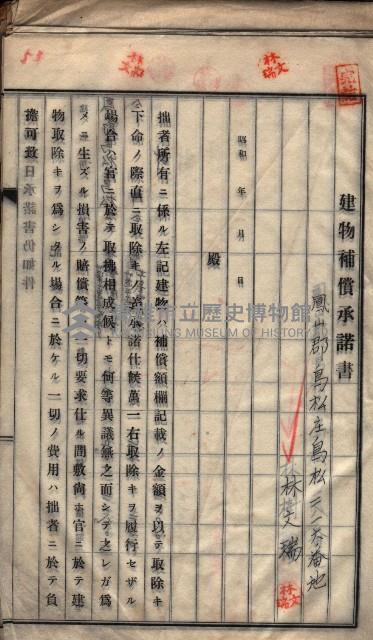 建物補償承諾書
鳳山郡鳥松庄鳥松二二参番地
林文瑞
昭和　年　月　日
殿
拙者所有ニ係ル左記建物ハ補償額欄記載ノ金額ヲ以テ取除キ
下命ノ際直ニ取除キノ義承諾仕候萬一右取除キヲ履行セザル
場合ハ官ニ於テ取拂相成候トモ何等異議無之而シテ之レガ爲
メニ生ズル損害ノ賠償等一切要求仕ル間敷尙ホ官ニ於テ建
物取除キヲ爲シタル場合ニ於ケル一切ノ費用ハ拙者ニ於テ負
擔可致日承諾書仍如件
林文瑞
林文瑞
林文
高雄市立歷史博物館
KAOHSIUNG MUSEUM OF HISTORY